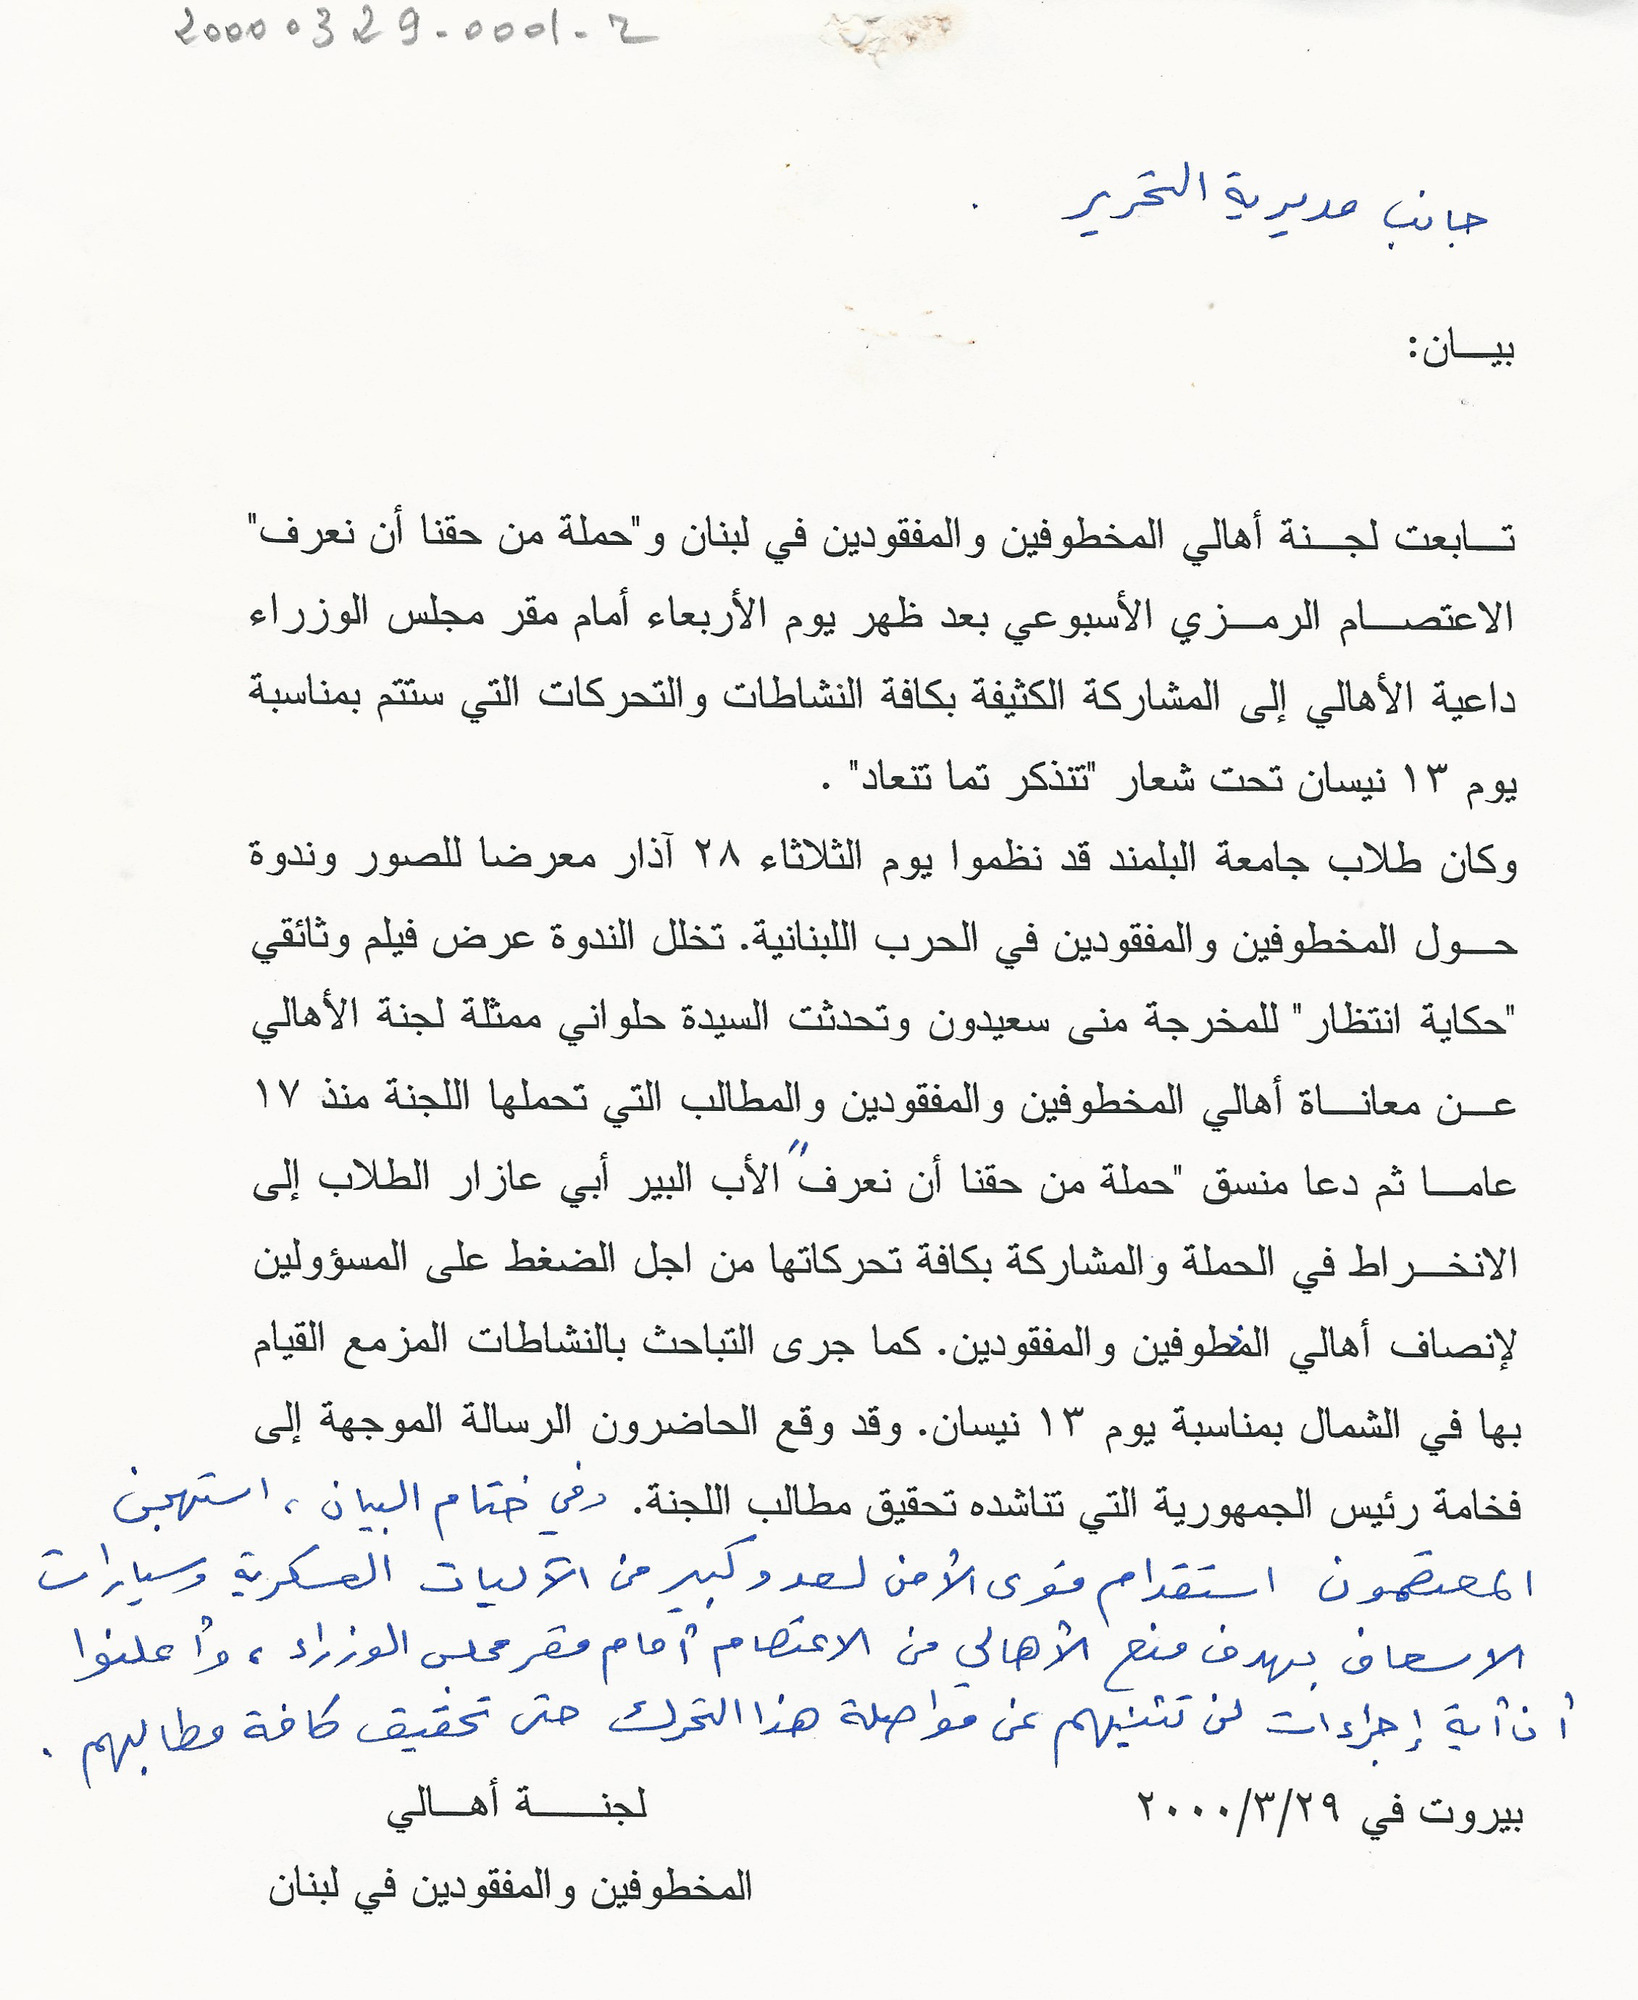 20000329-0001-2
جانب مديرية التحرير .
بيان:
تابعت لجنة أهالي المخطوفين والمفقودين في لبنان و"حملة من حقنا أن نعرف"
الاعتصام الرمزي الأسبوعي بعد ظهر يوم الأربعاء أمام مقر مجلس الوزراء
داعية الأهالي إلى المشاركة الكثيفة بكافة النشاطات والتحركات التي ستتم بمناسبة
يوم ١٣ نيسان تحت شعار "تتذكر تما تتعاد" .
وكان طلاب جامعة البلمند قد نظموا يوم الثلاثاء ٢٨ آذار معرضا للصور وندوة
حول المخطوفين والمفقودين في الحرب اللبنانية. تخلل الندوة عرض فيلم وثائقي
"حكاية انتظار" للمخرجة منى سعيدون وتحدثت السيدة حلواني ممثلة لجنة الأهالي
عن معاناة أهالي المخطوفين والمفقودين والمطالب التي تحملها اللجنة منذ ١٧
عاما ثم دعا منسق "حملة من حقنا أن نعرف" الأب البير أبي عازار الطلاب إلى
الانخراط في الحملة والمشاركة بكافة تحركاتها من اجل الضغط على المسؤولين
لإنصاف أهالي المخطوفين والمفقودين. كما جرى التباحث بالنشاطات المزمع القيام
بها في الشمال بمناسبة يوم ١٣ نيسان. وقد وقع الحاضرون الرسالة الموجهة إلى
فخامة رئيس الجمهورية التي تتاشده تحقيق مطالب اللجنة. وفي ختام البيان ، استهجن
المعتصمون استقدام قوى الأمن لعدد كبير من الآليات العسكرية وسيارات
الاسعاف بهدف منع الأهالي من الاعتصام أمام مقر مجلس الوزراء ، وأعلنوا
أن أية إجراءات لن تثنيهم عن مواصلة هذا التحرك حتى تحقيق كافة مطالبهم .
بيروت في ٢٠٠٠/٣/٢٩
لجنة أهالي
المخطوفين والمفقودين في لبنان